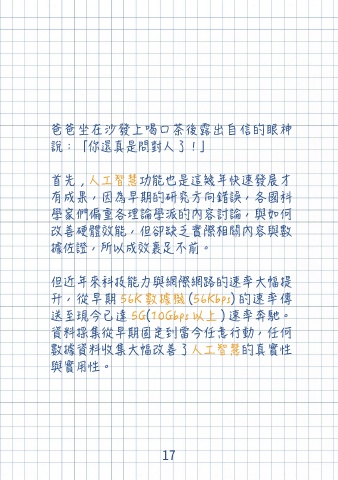 爸爸坐在沙發上喝口茶後露出自信的眼神
說：「你還真是問對人了！」
首先，人工智慧功能也是這幾年快速發展才
有成果，因為早期的研究方向錯誤，各國科
學家們偏重各理論學派的內容討論，與如何
改善硬體效能，但卻缺乏實際相關內容與數
據佐證，所以成效裹足不前。
但近年來科技能力與網際網路的速率大幅提
升，從早期 56K 數據機 (56Kbps) 的速率傳
送至現今已達 5G(10Gbps 以上 ) 速率奔馳。
資料採集從早期固定到當今任意行動，任何
數據資料收集大幅改善了人工智慧的真實性
與實用性。
17